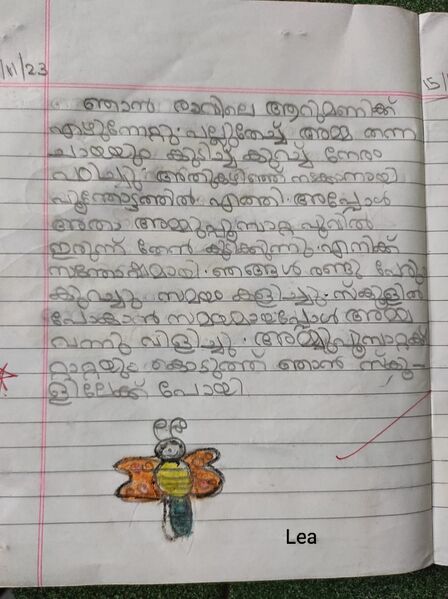 /11/23
15/
ഞാൻ രാവിലെ ആറുമണിക്ക്
എഴുന്നേറ്റു. പല്ലുതേച്ച് അമ്മ തന്ന
ചായയും കുടിച്ചു കുറച്ച് നേരം
പഠിച്ചു. അതുകഴിഞ്ഞ് നടക്കാനായി
പൂന്തോട്ടത്തിൽ എത്തി. അപ്പോൾ
അതാ അമ്മുപൂമ്പാറ്റ പൂവിൽ
ഇരുന്ന് തേൻ കുടിക്കുന്നു. എനിക്ക്
സന്തോഷമായി. ഞങ്ങൾ രണ്ടു പേരും
കുറച്ചു സമയം കളിച്ചു. സ്കൂളിൽ
പോകാൻ സമയമായപ്പോൾ അമ്മ
വന്നു വിളിച്ചു. അമ്മുപൂമ്പാറ്റക്ക്
റ്റാറ്റയും കൊടുത്ത് ഞാൻ സ്കൂ-
ളിലേക്ക് പോയി.
Lea